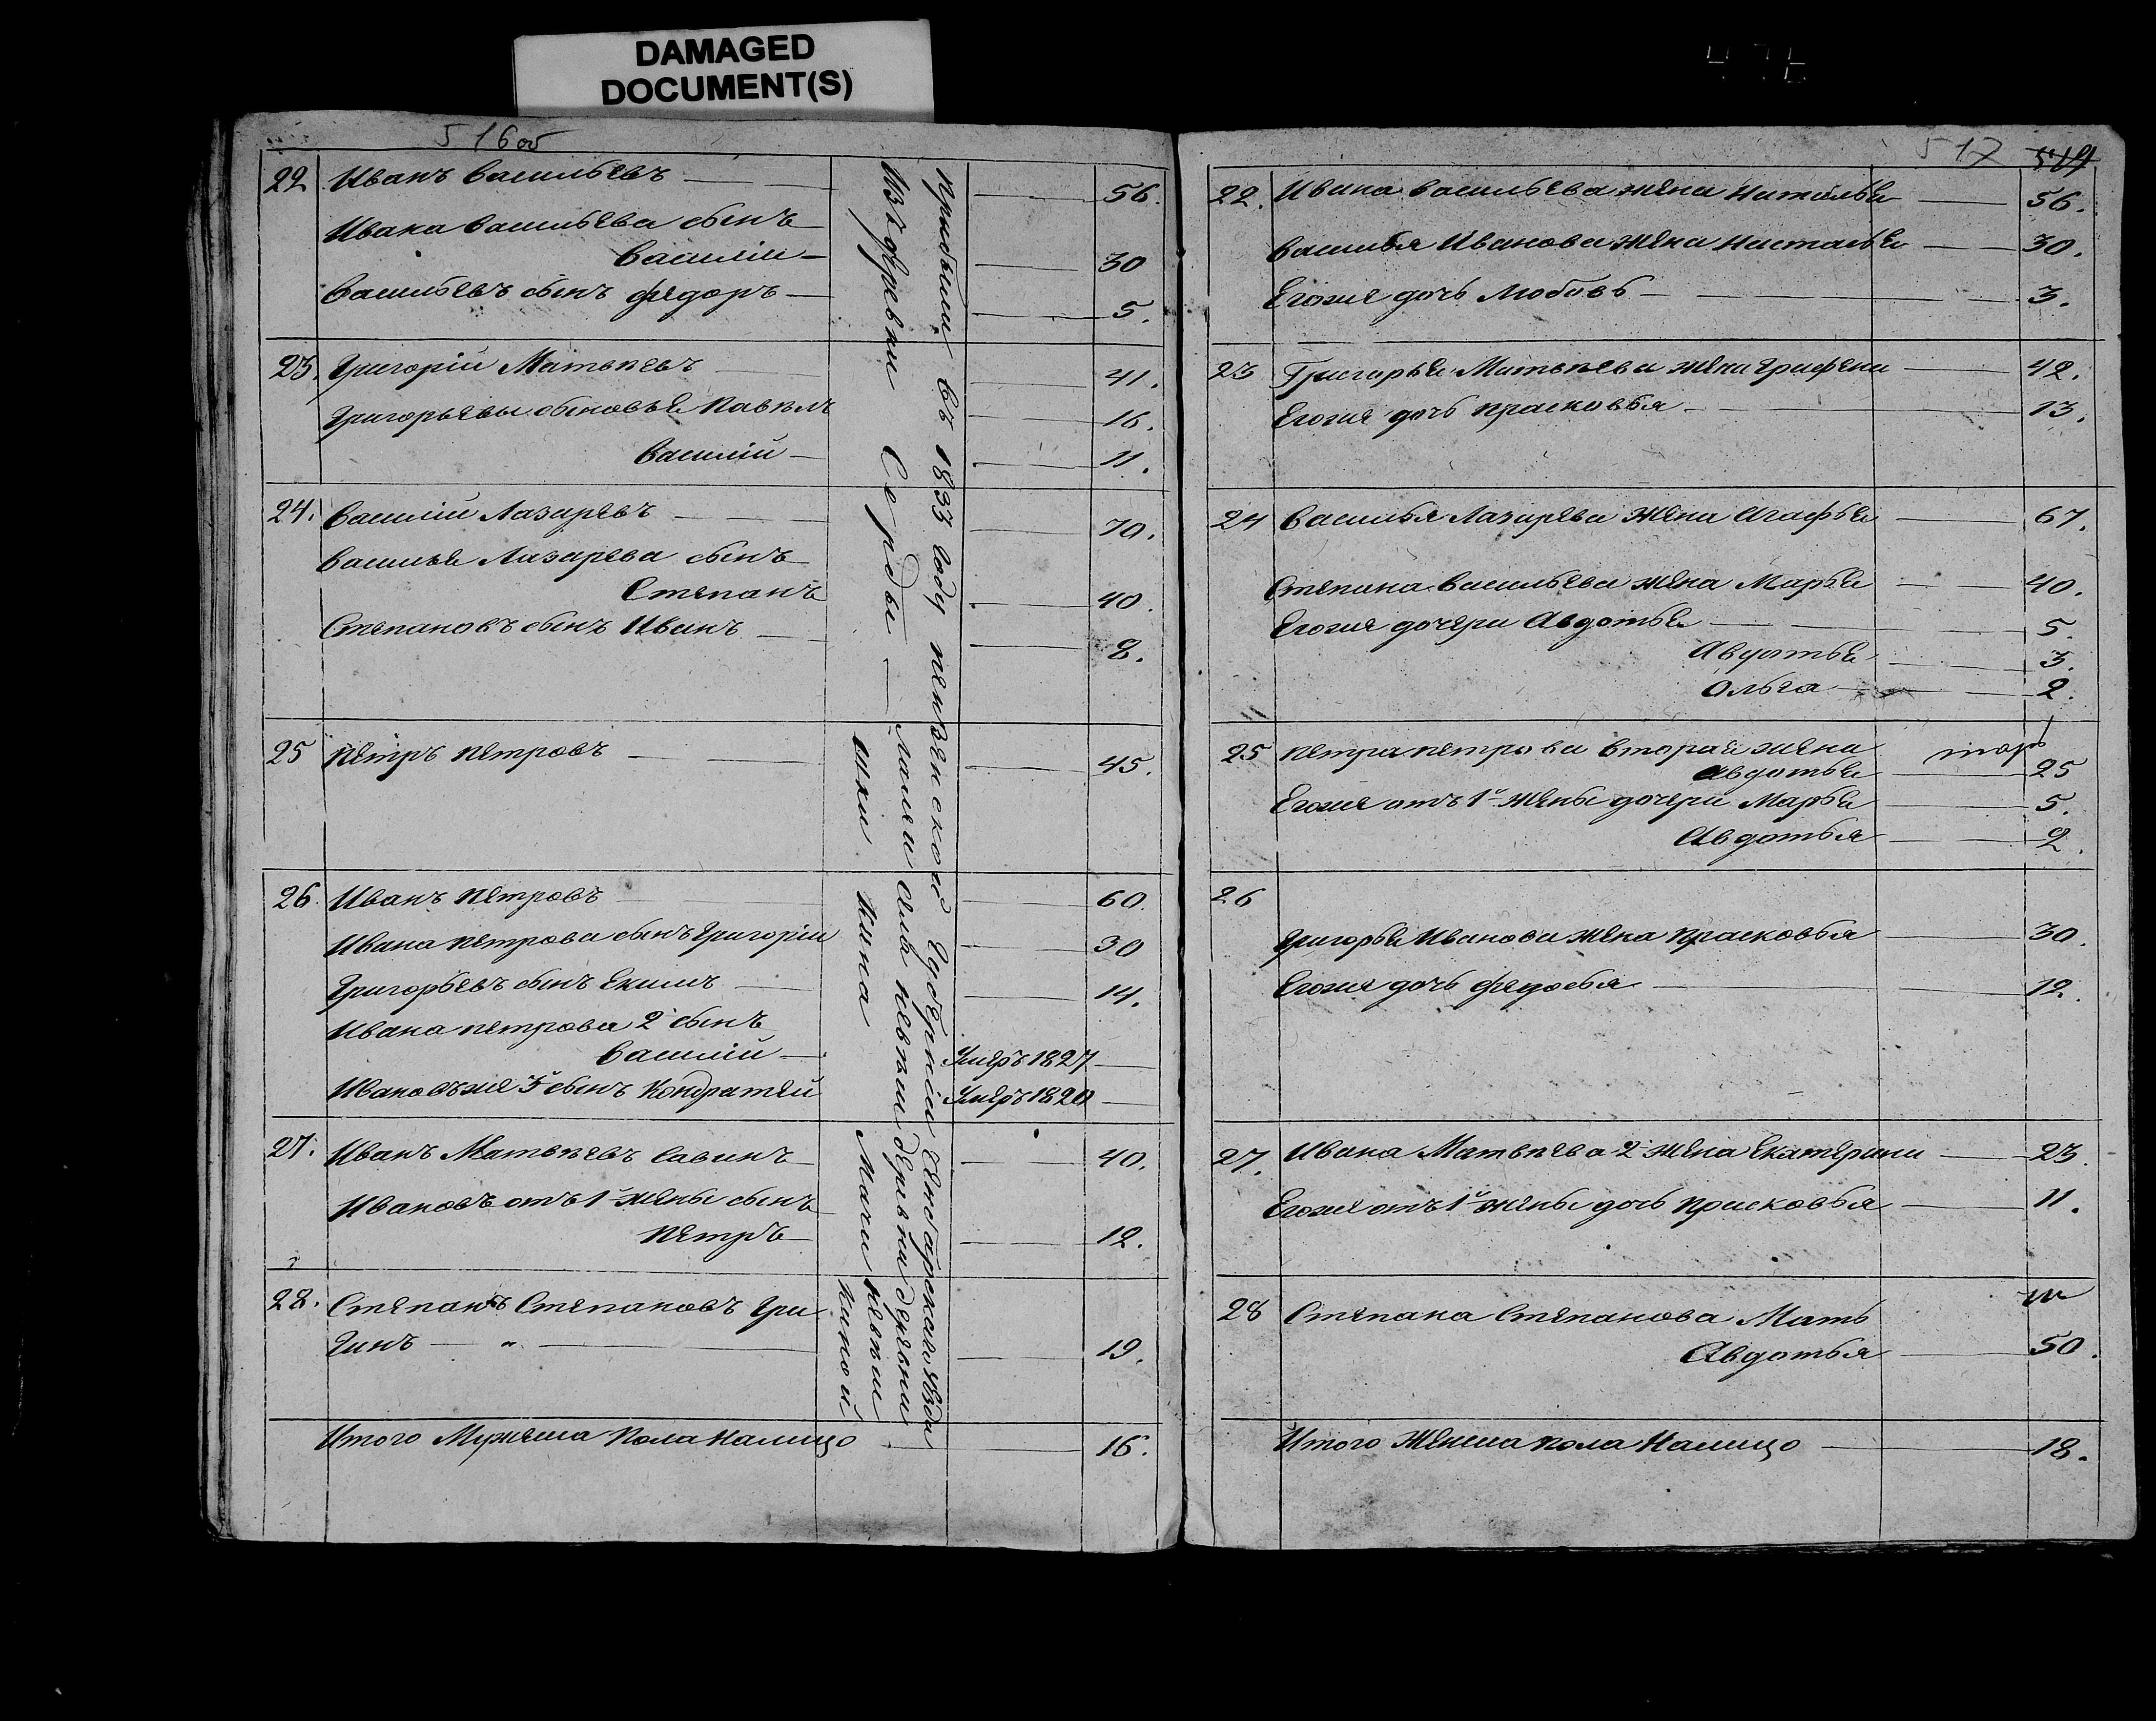 DAMAGED
DOCUMENT(S)
516об
22 Иванъ Васильевъ 56.
Ивана Васильева сынъ
Василій 30
Васильевъ сынъ Федоръ 5.
23. Григорій Матвѣевъ 41.
Григорьевы сыновья Павѣлъ 16.
Василій 11.
24. Василій Лазаревъ 70.
Василья Лазарева сынъ
Степанъ 40.
Степановъ сынъ Иванъ 8.
25 Петръ Петровъ 45.
26. Иванъ Петровъ 60.
Ивана Петрова сынъ Григорій 30
Григорьевъ сынъ Екимъ 14.
Ивана Петрова 2й сынъ
Василій Умеръ 1827
Ивановъ же 3й сынъ Кондратей Умеръ 1820
27. Иванъ Матвѣевъ Савинъ 40.
Ивановъ отъ 1й жены сынъ
Петръ 12.
28. Степанъ Степановъ Гри
гинъ 19.
Итого Мужеска пола налицо 16.
прибыли въ 1833 году пензенской Губерніи
Изъ деревни Середы
517 519
22. Ивана Васильева жена Наталья 56.
Василья Иванова жена Настасья 30.
Его же дочь Любовь 3.
23 Григорья Матвѣева жена Графена 42.
Его же дочь Прасковья 13.
24 Василья Лазарева жена Агафья 67.
Степана Васильева жена Марья 40.
Его же дочери Авдотья 5.
Авдотья 3.
Ольга 2.
25 Петра Петрова вторая жена
Авдотья 25
Его же отъ 1й жены дочери Марья 5.
Авдотья 2.
26
Григорья Иванова жена Прасковья 30.
Его же дочь Федосья 12.
27. Ивана Матвѣева 2я жена Екатерина 23.
Его же отъ 1й жены дочь Прасковья 11.
28 Степана Степанова Мать
Авдотья 50.
Итого Женска пола Налицо 18.